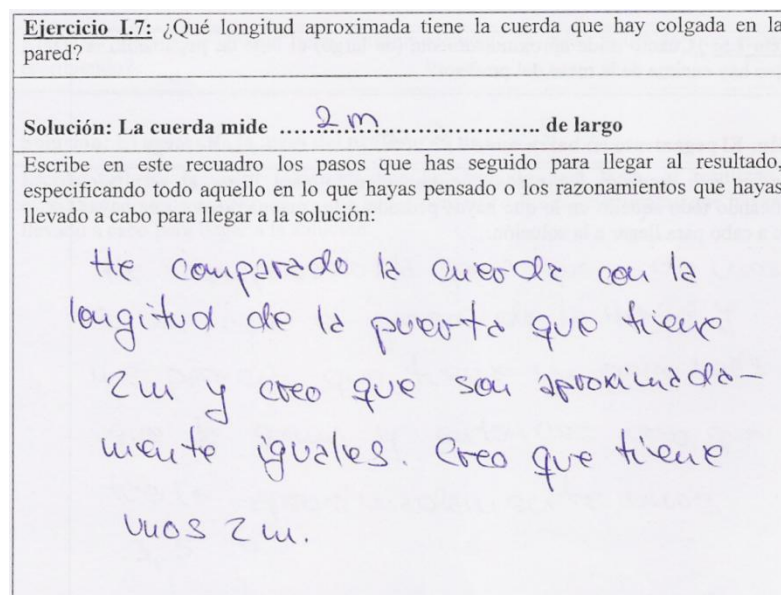 Ejercicio I.7: ¿Qué longitud aproximada tiene la cuerda que hay colgada en la
pared?
Solución: La cuerda mide ....2 m.............................. de largo
Escribe en este recuadro los pasos que has seguido para llegar al resultado,
especificando todo aquello en lo que hayas pensado o los razonamientos que hayas
llevado a cabo para llegar a la solución:
He comparado la cuerda con la
longitud de la puerta que tiene
2m y creo que son aproximada-
mente iguales. Creo que tiene
unos 2m.